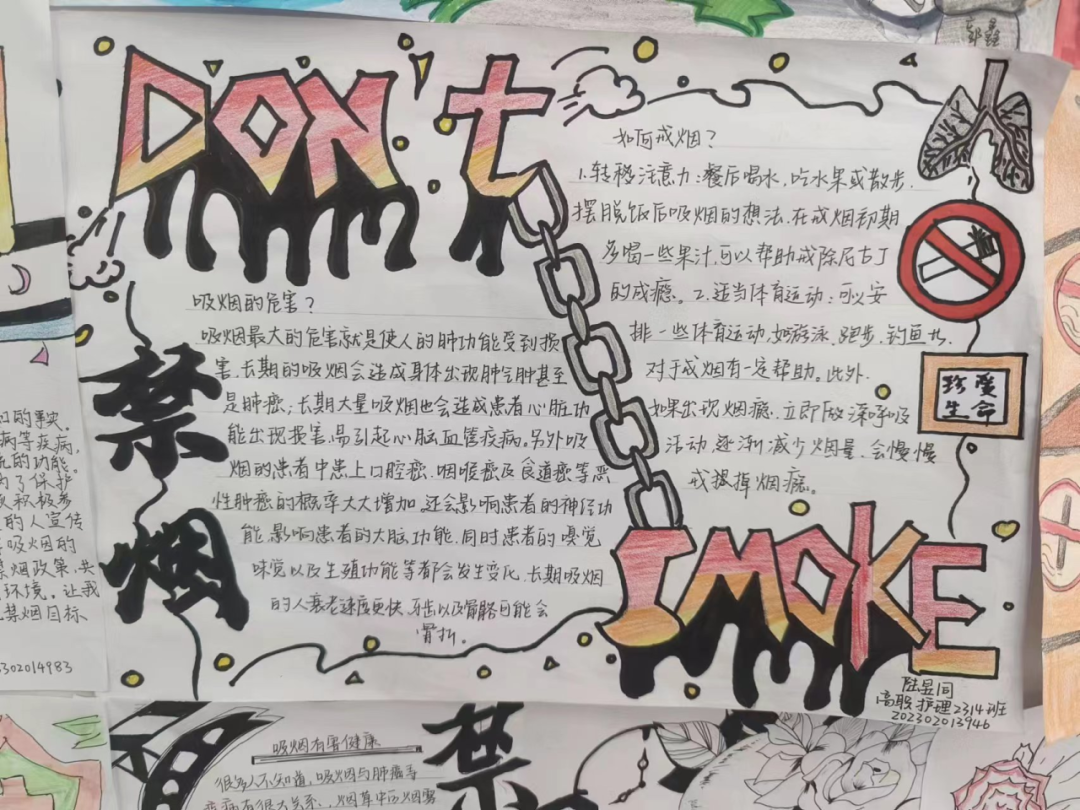 DON'T
吸烟的危害?
吸烟最大的危害就是使人的肺功能受到损
害,长期的吸烟会造成身体出现肺气肿甚至
是肺癌;长期大量吸烟也会造成患者心脏功
能出现损害,易引起心脑血管疾病。另外吸
烟的患者中患上口腔癌、咽喉癌及食道癌等恶
性肿瘤的概率大大增加,还会影响患者的神经功
能,影响患者的大脑功能,同时患者的嗅觉
味觉以及生殖功能等都会发生变化,长期吸烟
的人衰老速度更快,牙齿以及骨骼可能会
骨折。
禁烟
如何戒烟?
1.转移注意力:餐后喝水,吃水果或散步,
摆脱饭后吸烟的想法,在戒烟初期
多喝一些果汁,可以帮助戒除尼古丁
的成瘾。2.适当体育运动:可以安
排一些体育运动,如游泳、跑步、钓鱼
对于戒烟有一定帮助。此外,
如果出现烟瘾,立即做深呼吸
活动,逐渐减少烟量,会慢慢
戒掉烟瘾。
珍爱
生命
SMOKE
陆昱同
高职护理2314班
202302013946
的事实。
病等疾病,
的功能。
为了保护
积极参
的人宣传
吸烟的
禁烟政策,共
环境。让我
禁烟目标
302014983
吸烟有害健康
很多人不知道,吸烟与肺癌等
疾病有很大关系,烟草中的烟雾
禁